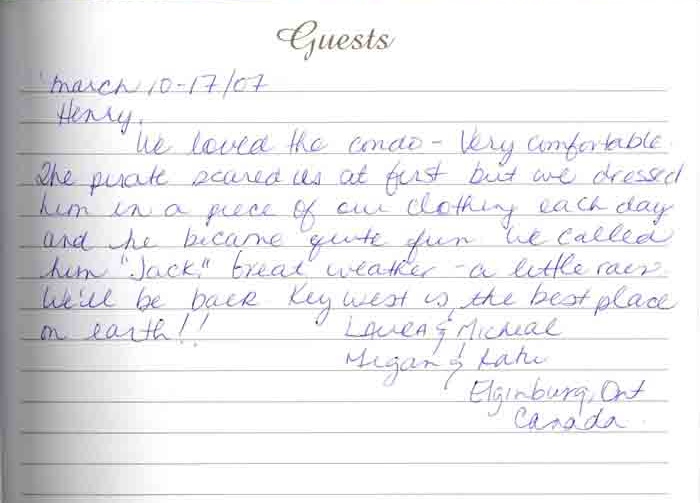 Guests
March 10-17/07
Henry,
We loved the condo - Very comfortable.
The pirate scared us at first but we dressed
him in a piece of our clothing each day
and he became quite fun we called
him "Jack." Great weather - a little rain.
We'll be back Key West is the best place
on earth!! Laura & Micheal
Megan & Katie
Elginburg, Ont
Canada.